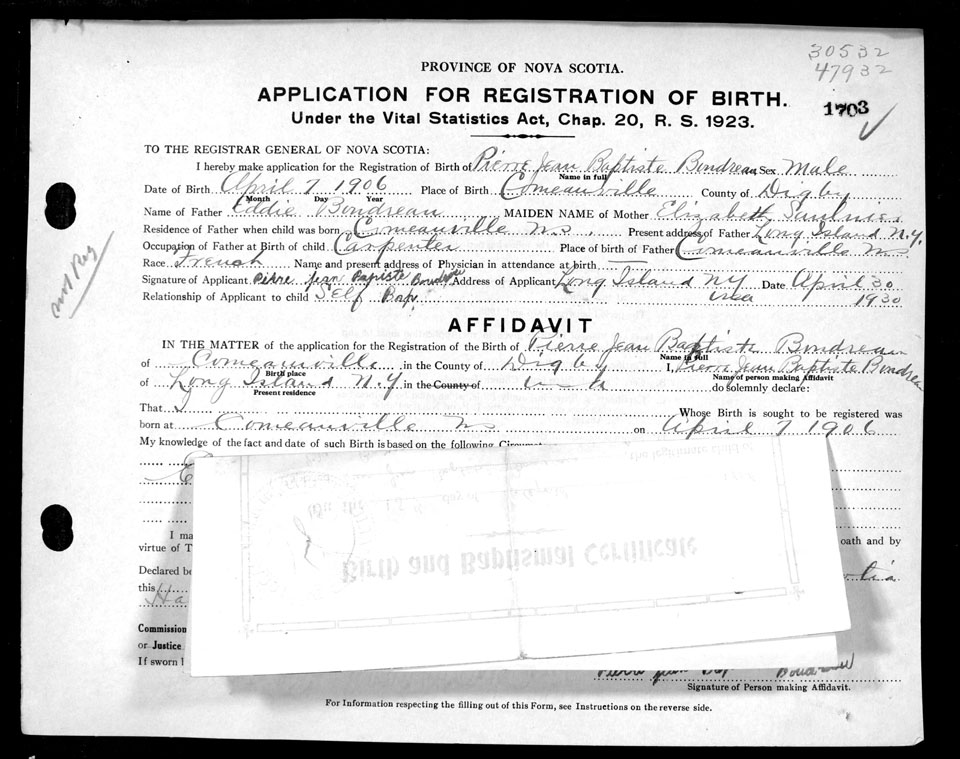 30532
47932
PROVINCE OF NOVA SCOTIA.
APPLICATION FOR REGISTRATION OF BIRTH.
1703
Under the Vital Statistics Act, Chap. 20, R. S. 1923.
TO THE REGISTRAR GENERAL OF NOVA SCOTIA:
I hereby make application for the Registration of Birth of Pierre Jean Baptiste Boudreau Sex Male
Name in full
Date of Birth April 7 1906 Place of Birth Comeauville County of Digby
Month Day Year
Name of Father Eddie Boudreau MAIDEN NAME of Mother Elizabeth Saulnier
Residence of Father when child was born Comeauville N.S. Present address of Father Long Island N.Y.
Occupation of Father at Birth of child Carpenter Place of birth of Father Comeauville N.S.
Race French Name and present address of Physician in attendance at birth —
Signature of Applicant Pierre Jean Baptiste Boudreau Address of Applicant Long Island NY Date April 30
Relationship of Applicant to child Self Bap. usa 1930
not Reg
AFFIDAVIT
IN THE MATTER of the application for the Registration of the Birth of Pierre Jean Baptiste Boudreau
Name in full
of Comeauville in the County of Digby I, Pierre Jean Baptiste Boudreau
Birth place Name of person making Affidavit
of Long Island N.Y in the County of do solemnly declare:
Present residence
That I Whose Birth is sought to be registered was
born at Comeauville NS on April 7 1906
My knowledge of the fact and date of such Birth is based on the following
I ma oath and by
virtue of T
Birth and Baptismal Certificate
Declared be
this
Ha
Commission
or Justice
If sworn
Pierre Jean Bap Boudreau
Signature of Person making Affidavit.
For Information respecting the filling out of this Form, see Instructions on the reverse side.